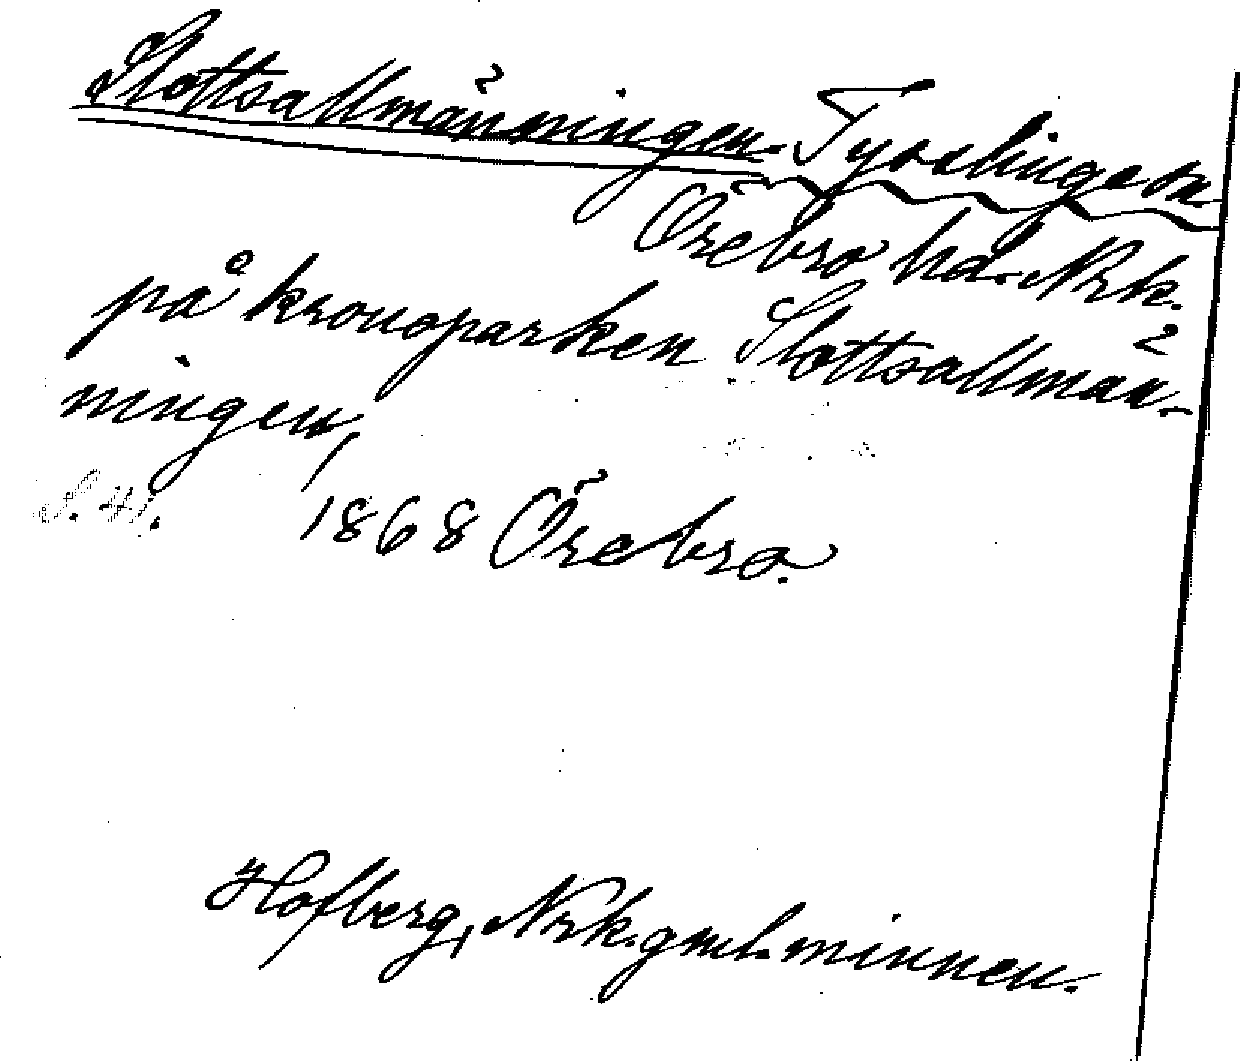 Slottsallmänningen. Tysslingesn.
Örebro hd. Nrk.
på kronoparken Slottsallmän-
ningen,
S. H. 1868 Örebro.
Hofberg, Nrk. gml. minnen.